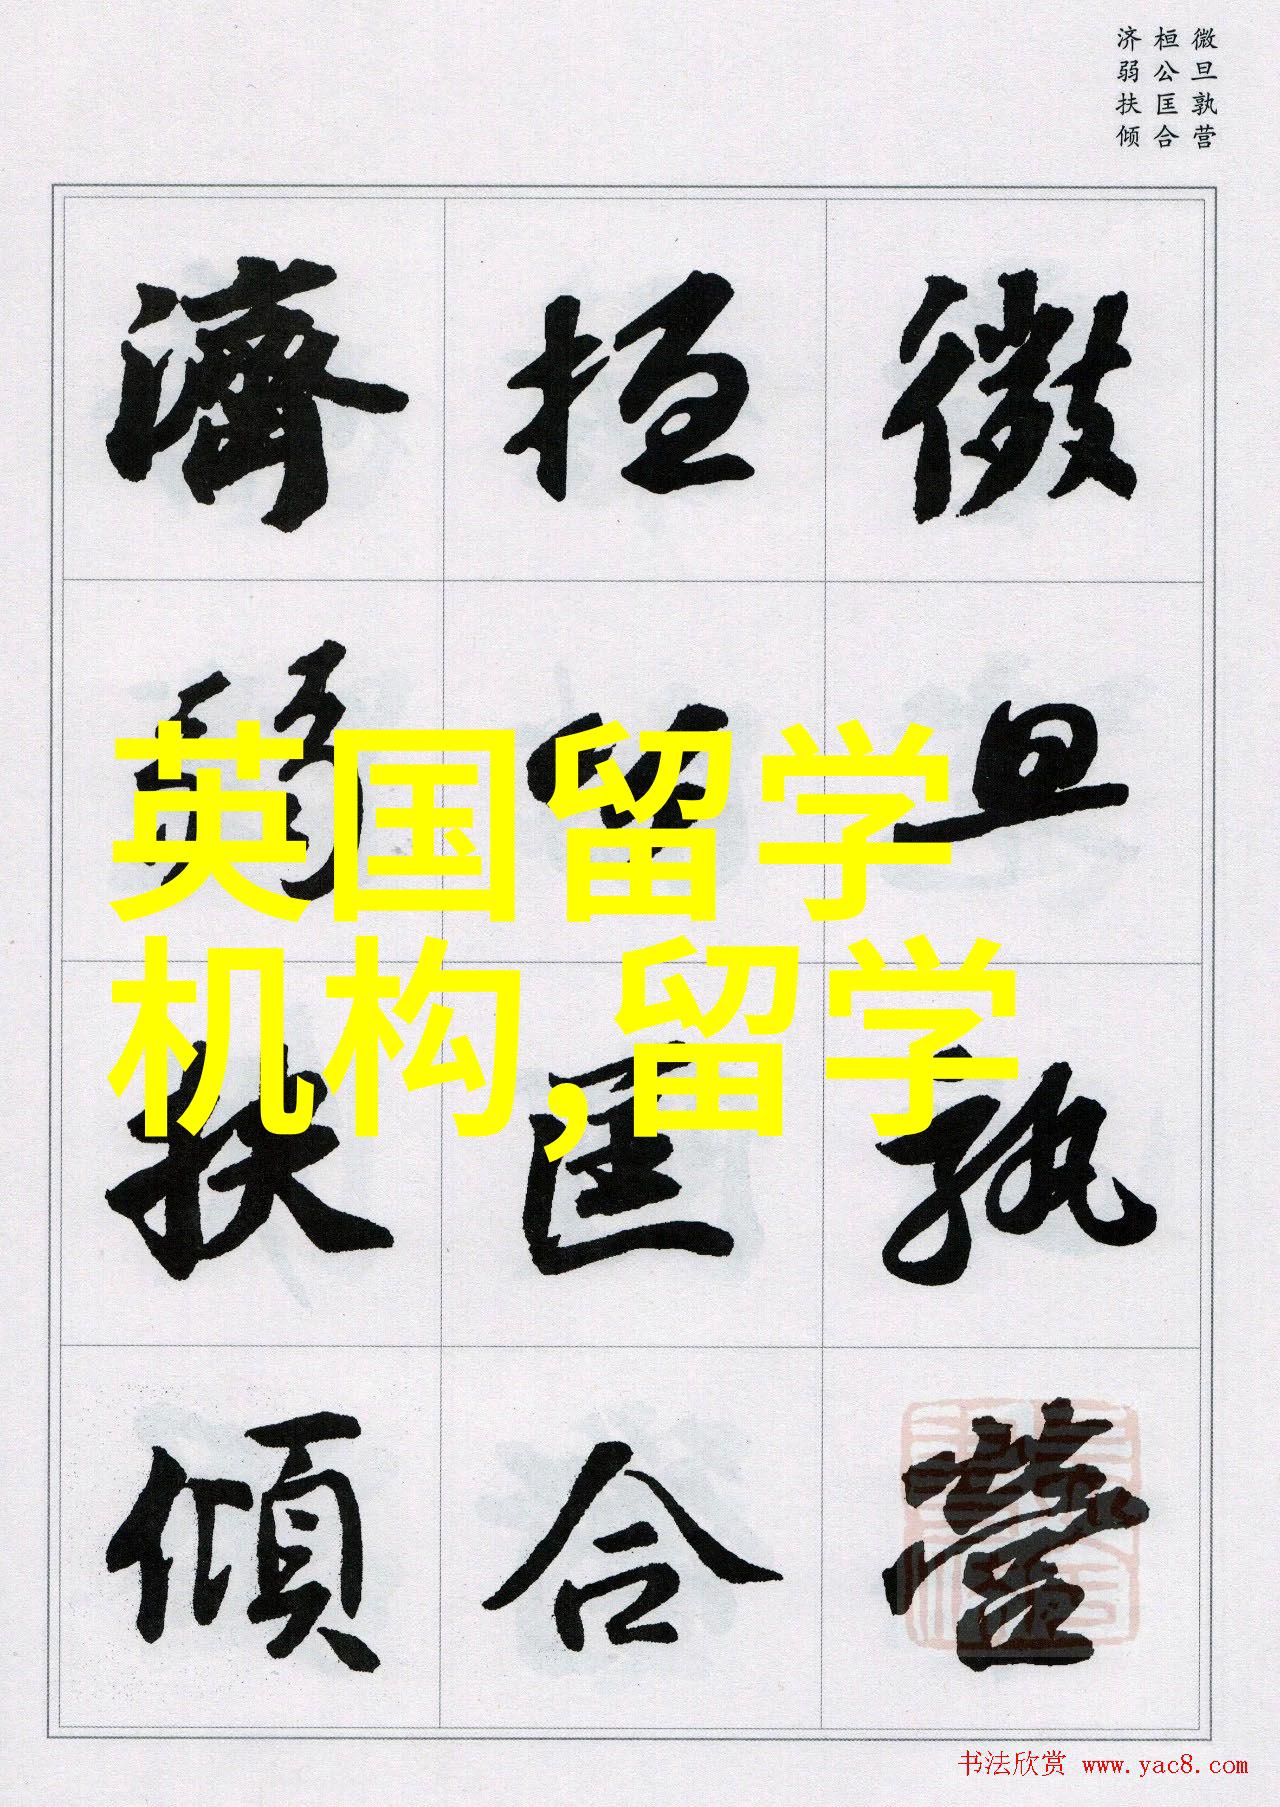 微旦孰营
桓公匡合
济弱扶倾
微旦孰營
桓公匡合
濟弱扶傾
英国留学
机构,留学
书法欣赏 www.yac8.com